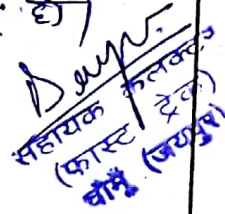 है)
सहायक कलक्टर
(फास्ट ट्रेक)
चौमूँ (जयपुर)